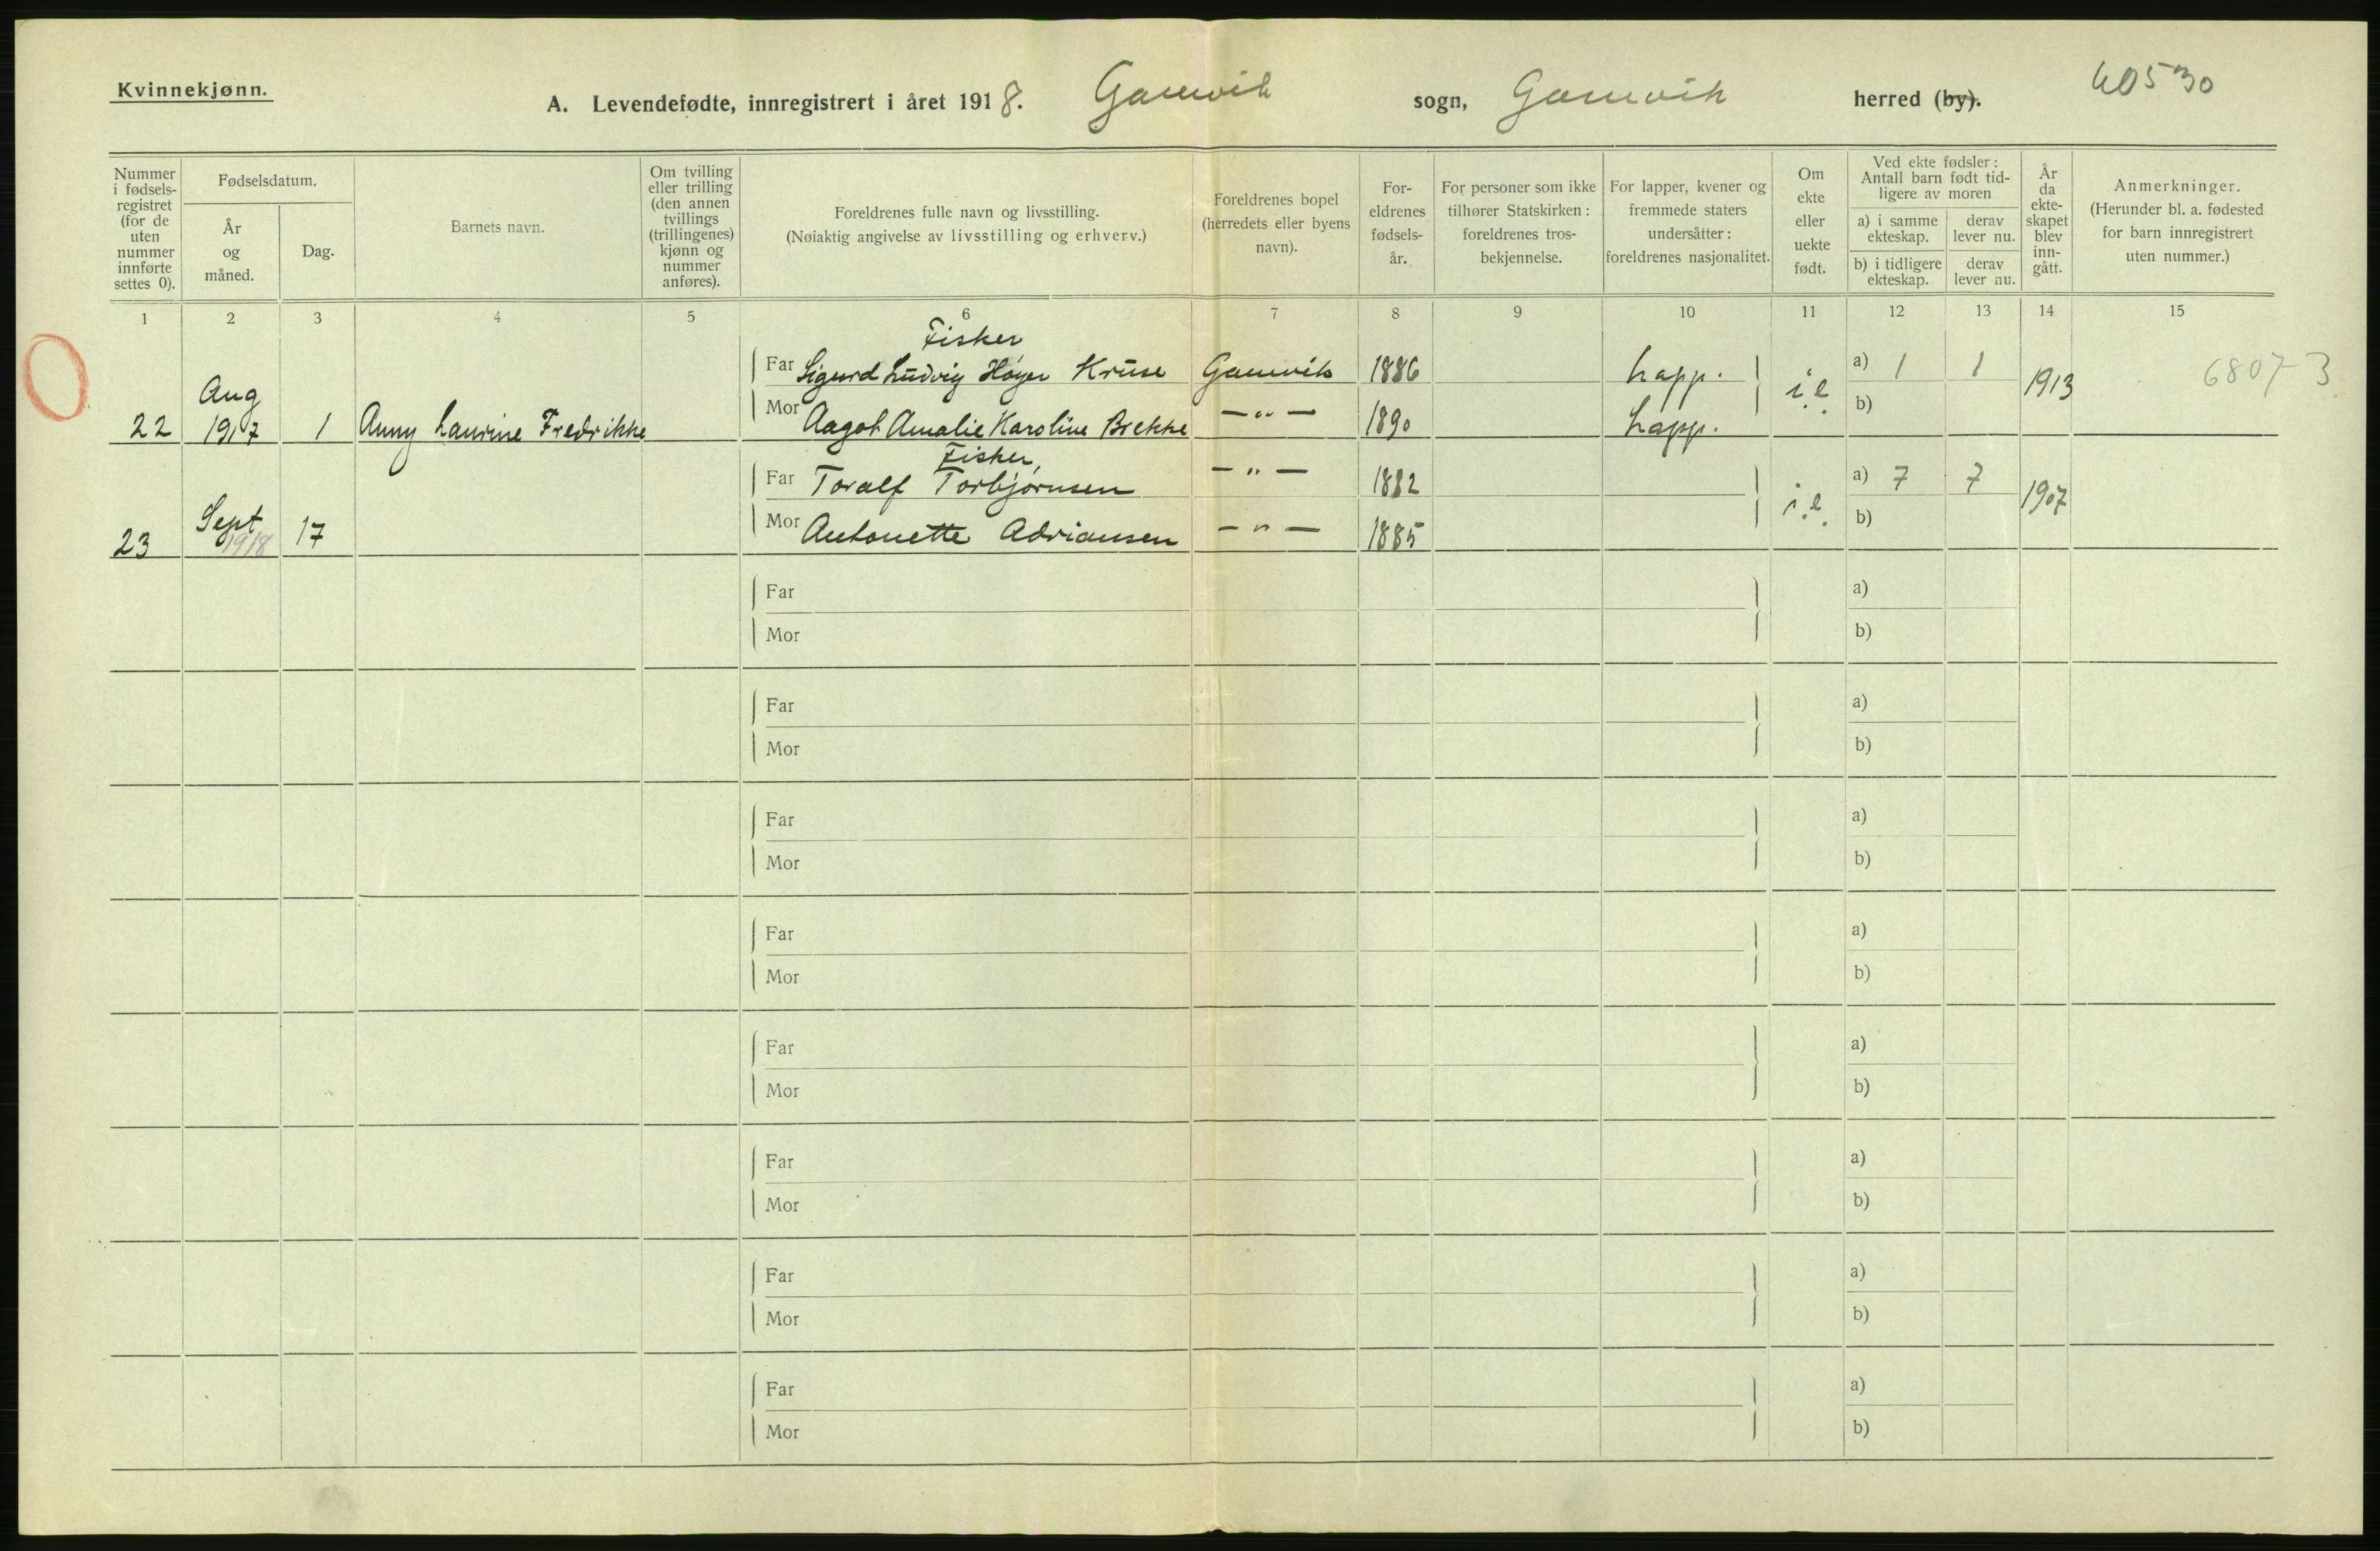 Kvinnekjønn.
A. Levendefødte, innregistrert i året 1918. Gamvik sogn, Gamvik herred (by). 60530
Nummer i fødsels-registret (for de uten nummer innførte settes 0).
Fødselsdatum.
År og måned.
Dag.
Barnets navn.
Om tvilling eller trilling (den annen tvillings (trillingenes) kjønn og nummer anføres).
Foreldrenes fulle navn og livsstilling.
(Nøiaktig angivelse av livsstilling og erhverv.)
Foreldrenes bopel (herredets eller byens navn).
For-eldrenes fødsels-år.
For personer som ikke tilhører Statskirken: foreldrenes tros-bekjennelse.
For lapper, kvener og fremmede staters undersåtter: foreldrenes nasjonalitet.
Om ekte eller uekte født.
Ved ekte fødsler: Antall barn født tid-ligere av moren
a) i samme ekteskap.
derav lever nu.
b) i tidligere ekteskap.
derav lever nu.
År da ekte-skapet blev inn-gått.
Anmerkninger.
(Herunder bl. a. fødested for barn innregistrert uten nummer.)
1 2 3 4 5 6 7 8 9 10 11 12 13 14 15
Fisker
Far Sigurd Ludvig Høyer Kruse Gamvik 1886 Lapp. a) 1 1
22 Aug 1917 1 Anny Laurine Fredrikke i.e. 1913 6807-3
Mor Aagot Amalie Karoline Brekke — " — 1890 Lapp. b)
Fisker,
Far Toralf Torbjørnsen — " — 1882 a) 7 7
23 Sept 1918 17 i.e. 1907
Mor Antonette Adriansen — " — 1885 b)
Far a)
Mor b)
Far a)
Mor b)
Far a)
Mor b)
Far a)
Mor b)
Far a)
Mor b)
Far a)
Mor b)
Far a)
Mor b)
Far a)
Mor b)